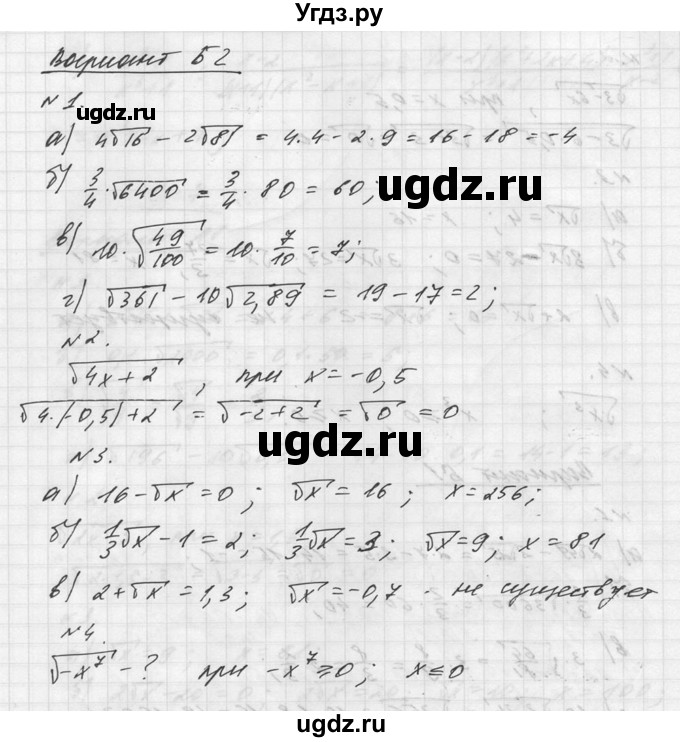 Угдз.ру
Вариант Б2
№1.
ugdz.ru
а) 4√16 − 2√81 = 4·4 − 2·9 = 16 − 18 = −4
б) 3/4 · √6400 = 3/4 · 80 = 60;
ugdz.ru
в) 10 · √(49/100) = 10 · 7/10 = 7;
г) √361 − 10√2,89 = 19 − 17 = 2;
№2.
√(4x + 2), при x = −0,5
√(4·(−0,5) + 2) = √(−2 + 2) = √0 = 0
ugdz.ru
№3.
а) 16 − √x = 0; √x = 16; x = 256;
б) 1/3 √x − 1 = 2; 1/3 √x = 3; √x = 9; x = 81
в) 2 + √x = 1,3; √x = −0,7 - не существует
№4.
√(−x⁷) − ? при −x⁷ ≥ 0; x ≤ 0
ugdz.ru
ugdz.ru